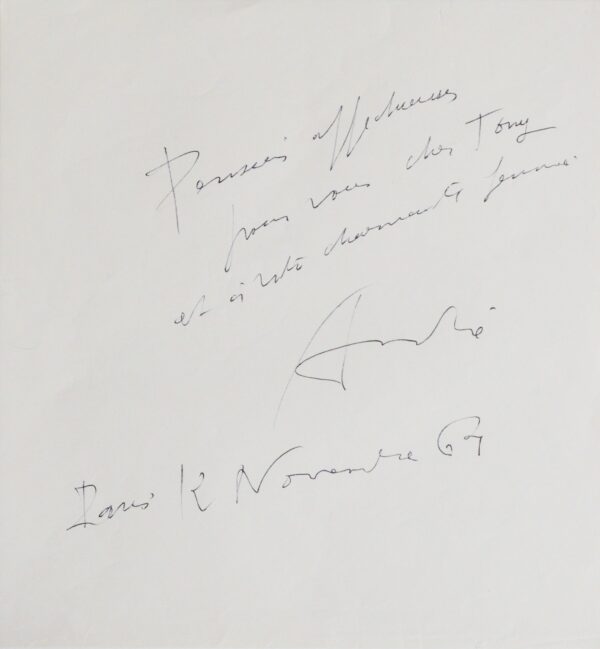 Pensées affectueuses
pour vous cher Tony
et à votre charmante femme.
André
Paris Novembre 69